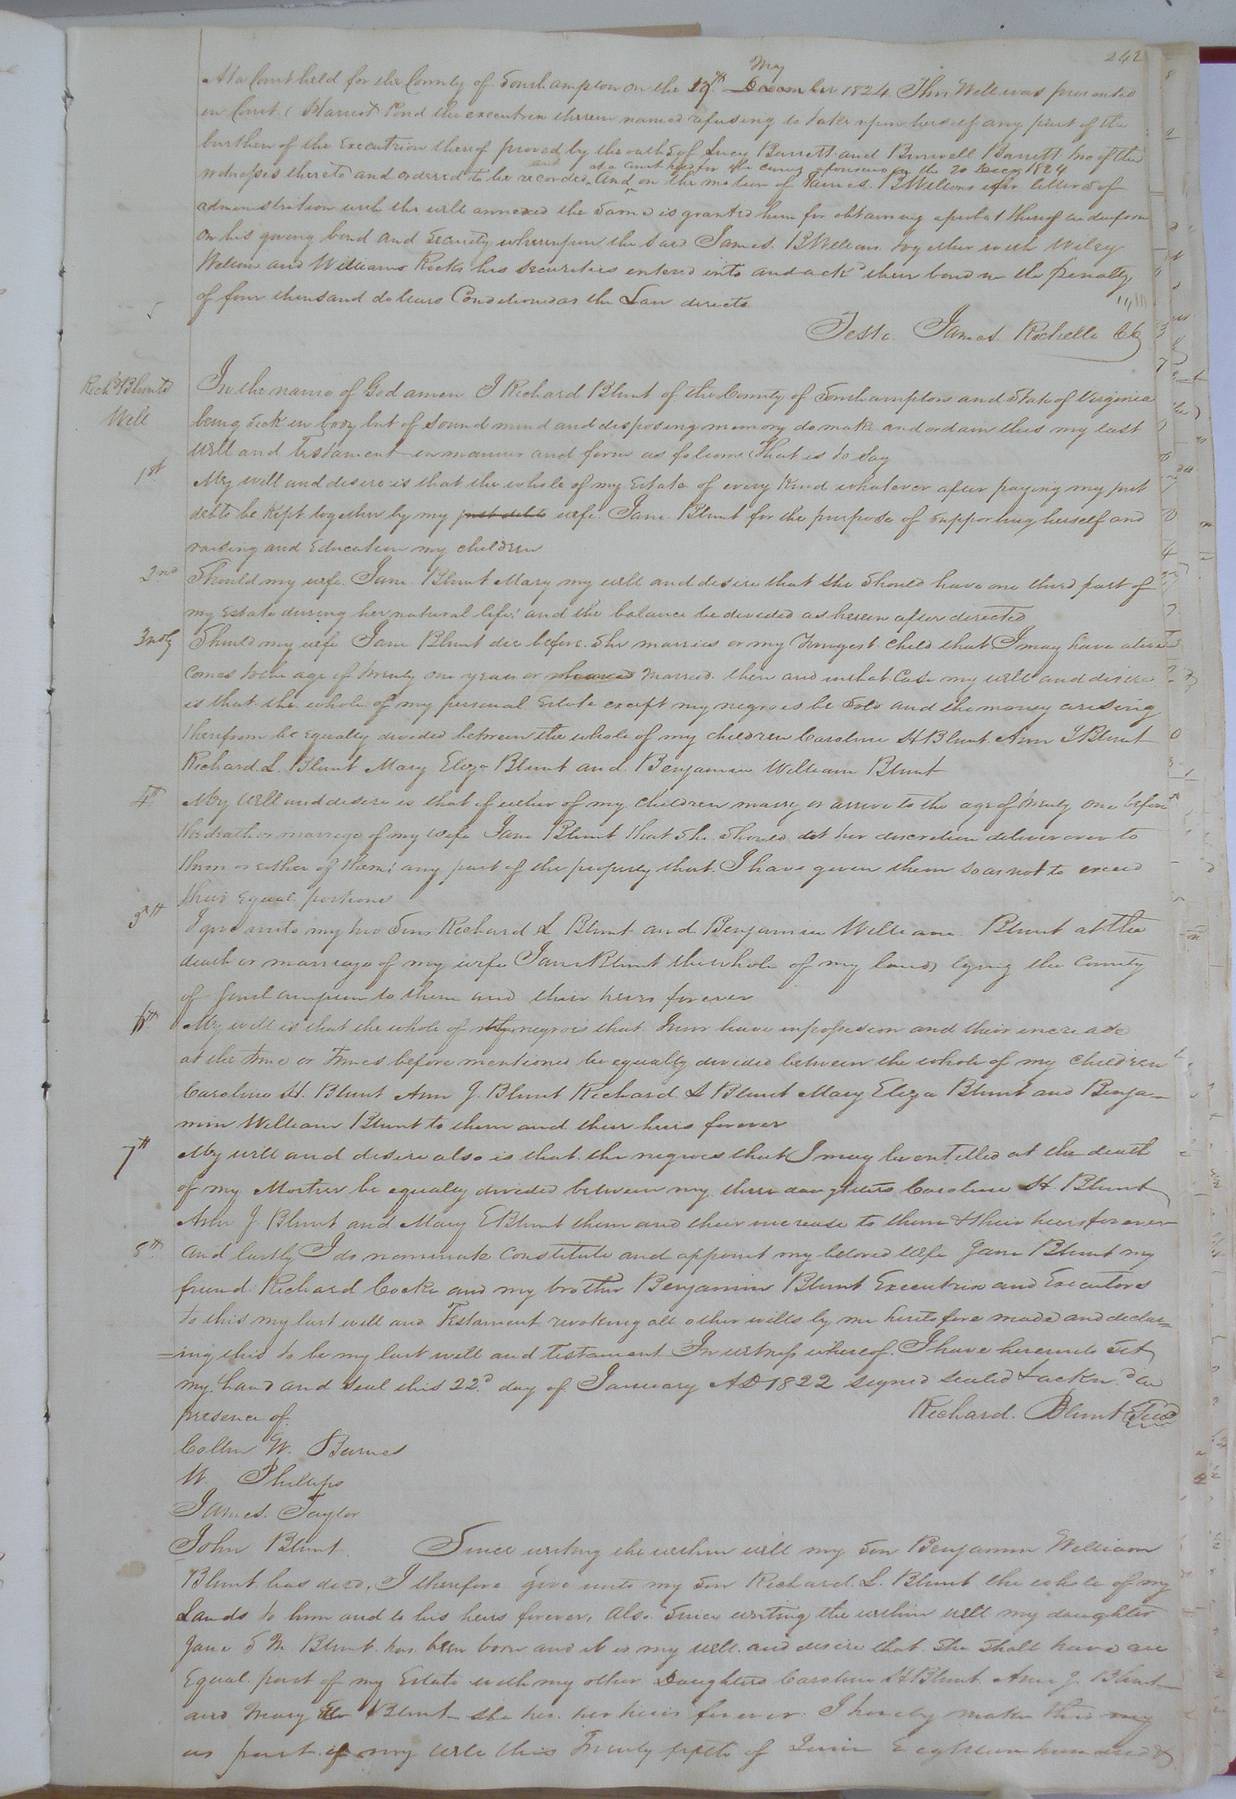 242
At a Court held for the County of Southampton on the 17th May December 1824 This Will was presented
in Court & Harriet Pond the executrix therein named refusing to take upon herself any part of the
burthen of the Execution thereof proved by the oaths of Lucy Barrett and Burwell Barrett two of the
witnesses thereto and ordered to be recorded. and at a Court held for the County aforesaid on the 20 Decr 1824
And on the motion of James B Williams for letters of
administration with the will annexed the same is granted him for obtaining a probat thereof in due form
on his giving bond and security whereupon the said James B Williams together with Wiley
Nelson and Williams Ricks his securities entered into and ackd their bond in the penalty
of four thousand dollars Conditioned as the Law directs
Teste. James Rochelle CC
Richd Blunts
Will
In the name of God amen I Richard Blunt of the County of Southampton and State of Virginia
being sick in body but of sound mind and disposing memory do make and ordain this my last
will and Testament in manner and form as follows That is to say
1st My will and desire is that the whole of my Estate of every Kind whatever after paying my just
debts be kept together by my just debts wife Jane Blunt for the purpose of supporting herself and
raising and Education my children
2nd Should my wife Jane Blunt Marry my will and desire that she should have one third part of
my Estate during her natural life and the balance be divided as herein after directed
3rdly Should my wife Jane Blunt die before she marries or my Youngest child that I may have alive
comes to the age of twenty one years or married. then and in that case my will and desire
is that the whole of my personal Estate except my negroes be sold and the money arising
therefrom be equally divided between the whole of my children Caroline H Blunt Ann J Blunt
Richard L. Blunt Mary Eliza Blunt and Benjamin William Blunt
4th My will and desire is that if either of my children marry or arrive to the age of twenty one before
the death or marriage of my wife Jane Blunt that she should at her discretion deliver over to
them or either of them any part of the property that I have given them so as not to exceed
their equal portions
5th I give unto my two Sons Richard L Blunt and Benjamin William Blunt at the
death or marriage of my wife Jane Blunt the whole of my lands lying the County
of Southampton to them and their heirs forever
6th My will is that the whole of my negroes that I now have in possession and their increase
at the time or times before mentioned be equally divided between the whole of my children
Caroline H. Blunt Ann J. Blunt Richard L Blunt Mary Eliza Blunt and Benja-
min William Blunt to them and their heirs forever
7th My will and desire also is that the negroes that I may be entitled at the death
of my Mother be equally divided between my three daughters Caroline H Blunt
Ann J. Blunt and Mary E Blunt them and their increase to them & their heirs forever
8th and lastly I do nominate Constitute and appoint my beloved wife Jane Blunt my
friend Richard Cocke and my brother Benjamin Blunt Executrix and Executors
to this my last will and Testament revoking all other wills by me heretofore made and declar=
=ing this to be my last will and testament In witness whereof I have hereunto set
my hand and seal this 22d day of January AD 1822 signed sealed & acknd in
presence of Richard. Blunt Seal
Collin W. Barnes
W. Phillips
James. Taylor
John Blunt. Since writing the within will my son Benjamin William
Blunt has died, I therefore give unto my son Richard. L. Blunt the whole of my
Lands to him and to his heirs forever, also since writing the within will my daughter
Jane S M Blunt has been born and it is my will and desire that she shall have an
Equal part of my Estate with my other Daughters Caroline H Blunt Ann J. Blunt
and Mary E Blunt she her. her heirs forever. I hereby make this my
as part of my will this Twenty fifth of June Eighteen hundred &